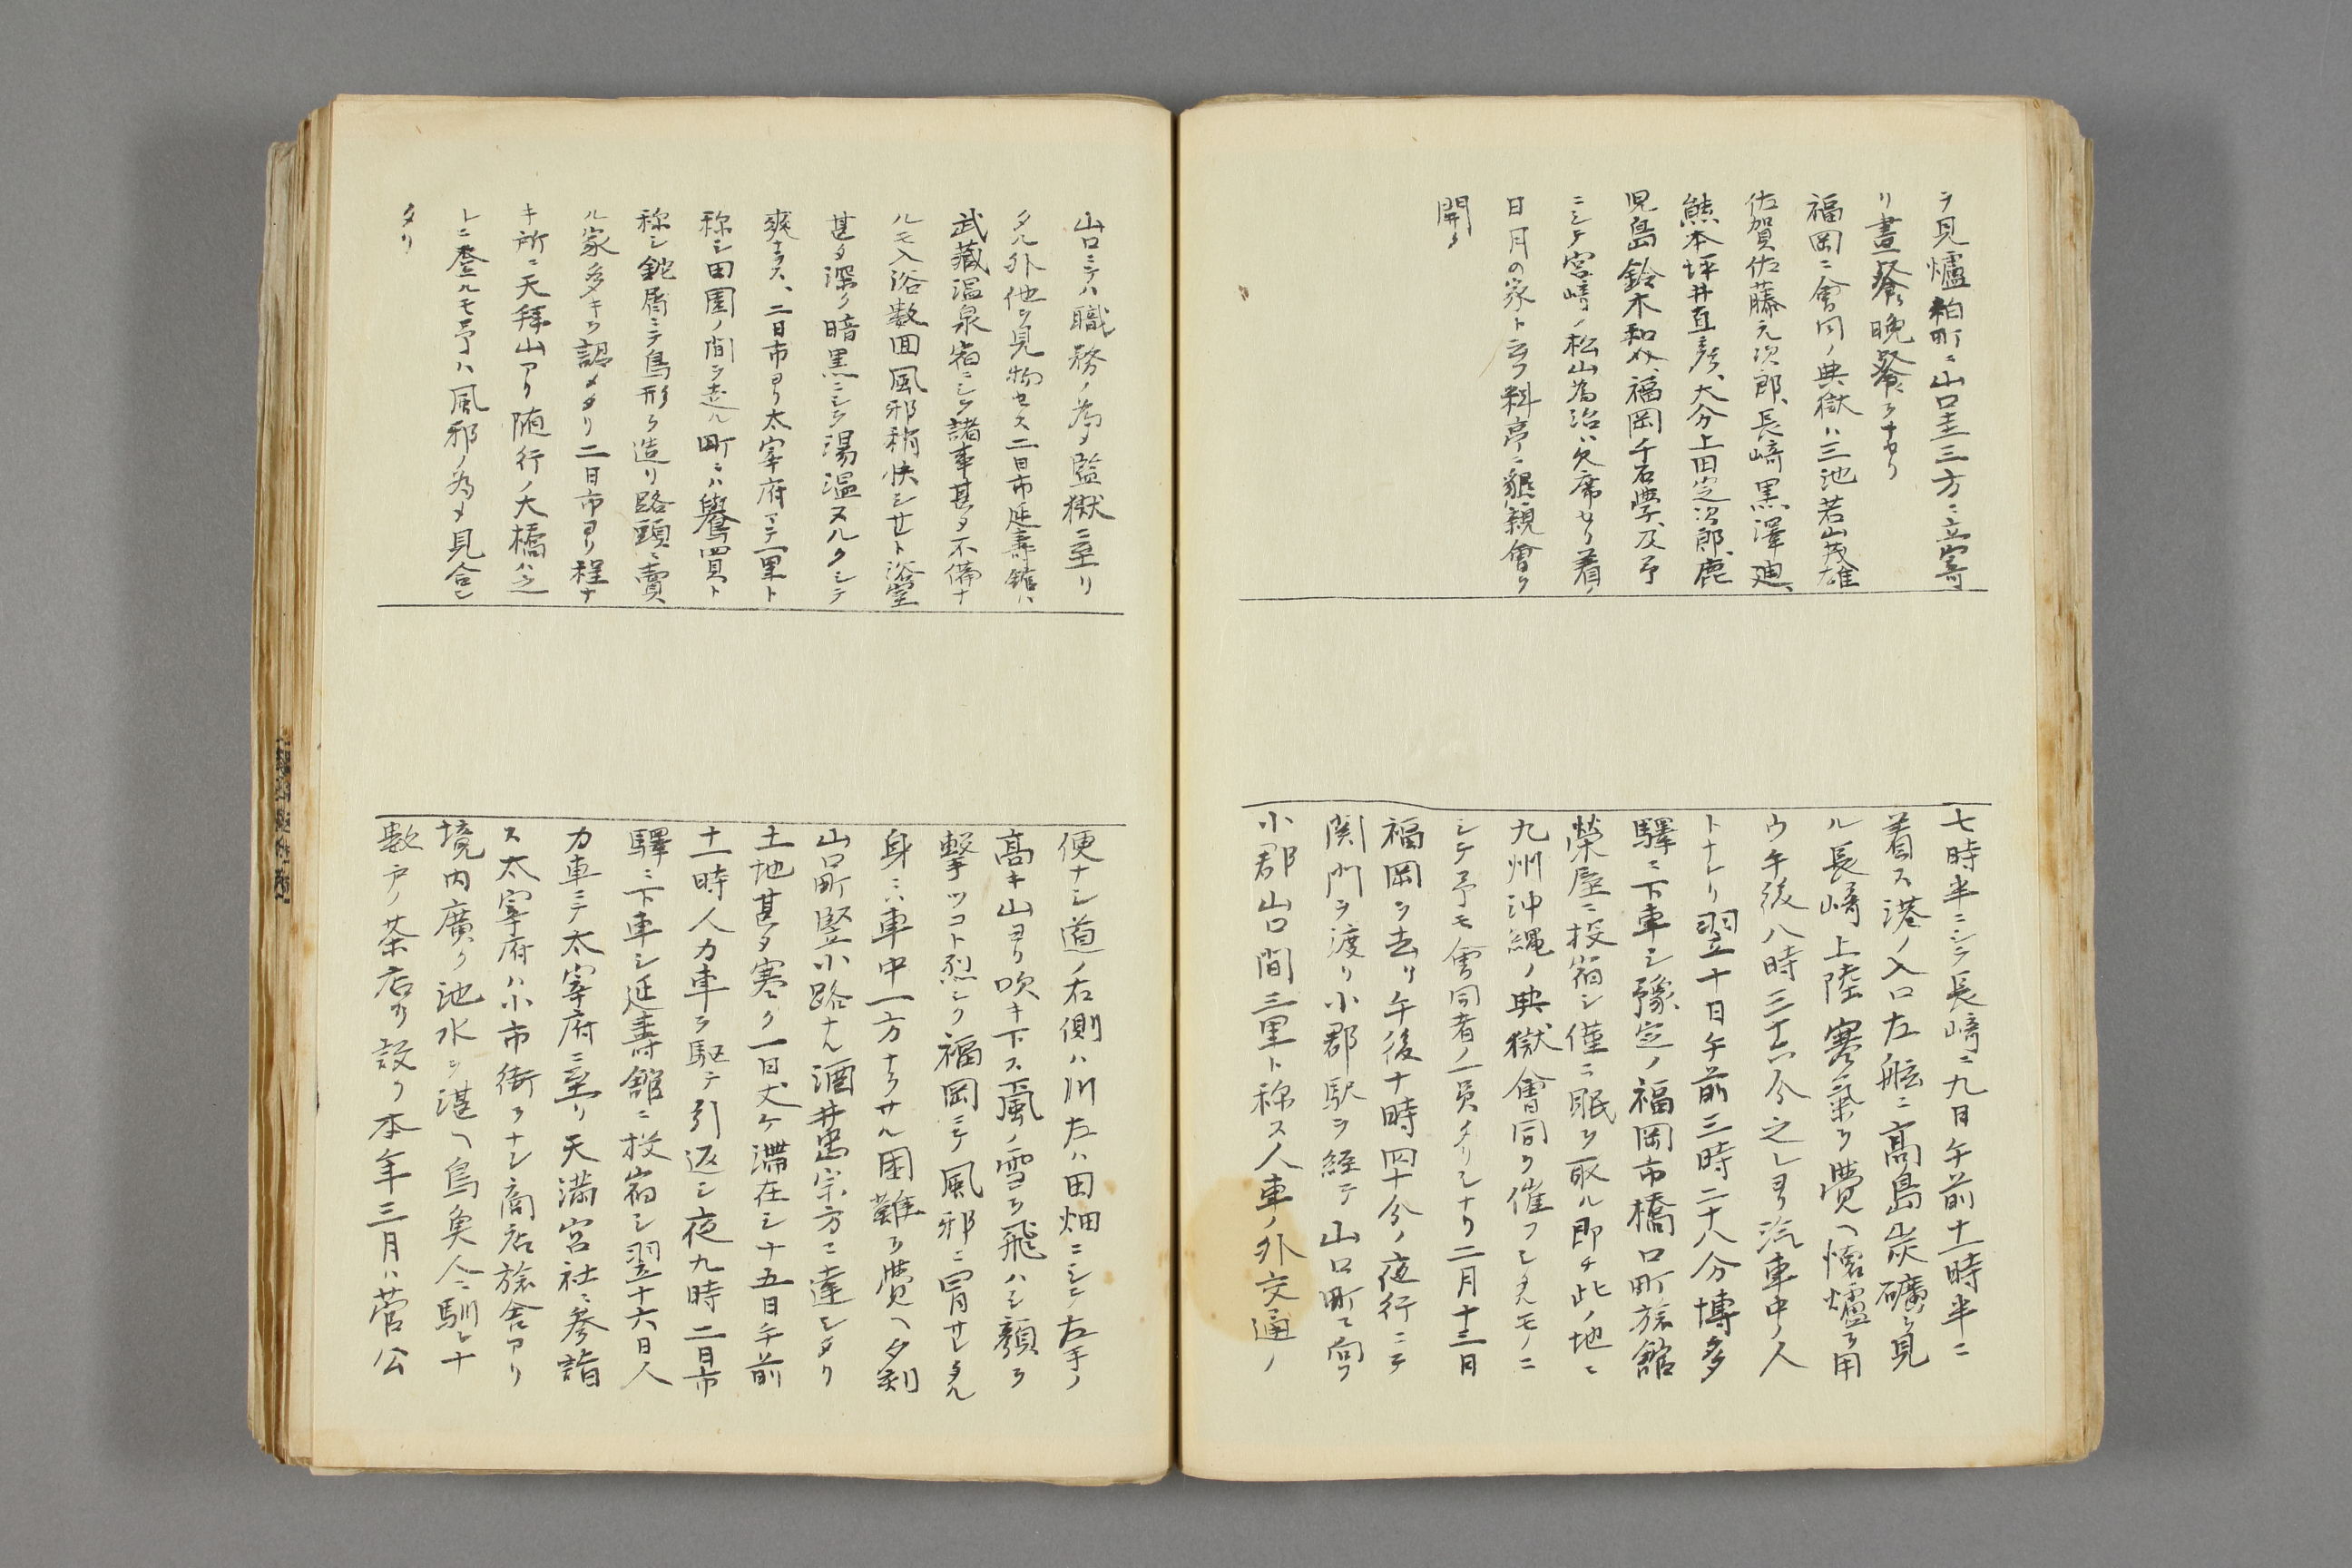 ヲ見爐粕町ニ山口圭三方ニ立寄
リ晝餐晩餐ヲナセリ
福岡ニ會同ノ典獄ハ三池若山茂雄
佐賀佐藤元次郎、長﨑黒澤廸、
熊本坪井直彦、大分上田定次郎、鹿
児島鈴木和 、福岡千石學、及予
ニシテ宮﨑ノ松山為治ハ欠席セリ着ノ
日月の家ト云フ料亭ニ懇親會ヲ
開ク
七時半ニシテ長﨑ニ九日午前十一時半ニ
着ス港ノ入口左舷ニ髙島炭礦ヲ見
ル長﨑上陸寒氣ヲ覺ヘ懐爐ヲ用
ウ午後八時三十六分之レヨリ汽車中ノ人
トナレリ翌十日午前三時二十八分博多
驛ニ下車シ豫定ノ福岡市橋口町旅舘
榮屋ニ投宿シ僅ニ眠ヲ取ル即チ此ノ地ニ
九州沖縄ノ典獄會同ヲ催フシタルモノニ
シテ予モ會同者ノ一員タリシナリ二月十三日
福岡ヲ去リ午後十時四十分ノ夜行ニテ
関門ヲ渡リ小郡駅ヲ経テ山口町ニ向フ
小郡山口間三里ト称ス人車ノ外交通ノ
山口ニテハ職務ノ為メ監獄ニ至リ
タル外他ヲ見物セス二日市延壽舘ハ
武藏温泉宿ニシテ諸事甚タ不備ナ
ルモ入浴数回風邪稍快シセト浴室
甚タ深ク暗黒ニシテ湯温ヌルクシテ
爽ナラス、二日市ヨリ太宰府マテ一里ト
称シ田圃ノ間ヲ走ル町ニハ鷽四貝ト
称シ鉋屑ニテ鳥形ヲ造リ路頭ニ賣
ル家多キヲ認メタリ二日市ヨリ程ナ
キ所ニ天拜山アリ随行ノ大橋ハ之
レニ登ルモ予ハ風邪ノ為メ見合セ
タリ
便ナシ道ノ右側ハ川左ハ田畑ニシテ左手ノ
髙キ山ヨリ吹キ下ス風ノ雪ヲ飛ハシ顔ヲ
撃ツコト烈シク福岡ニテ風邪ニ冒サレタル
身ニハ車中一方ナラサル困難ヲ覺ヘタ刻
山口町竪小路ナル酒井 宗方ニ達シタリ
土地甚タ寒ク一日丈ケ滞在シ十五日午前
十一時人力車ヲ駆テ引返シ夜九時二日市
驛ニ下車シ延壽舘ニ投宿シ翌十六日人
力車ニテ太宰府ニ至リ天満宮社ニ參詣
ス太宰府ハ小市街ヲナシ商店旅舎アリ
境内廣ク池水ヲ湛ヘ鳥魚人ニ馴レナ
數戸ノ茶店ヲ設ク本年三月ハ菅公